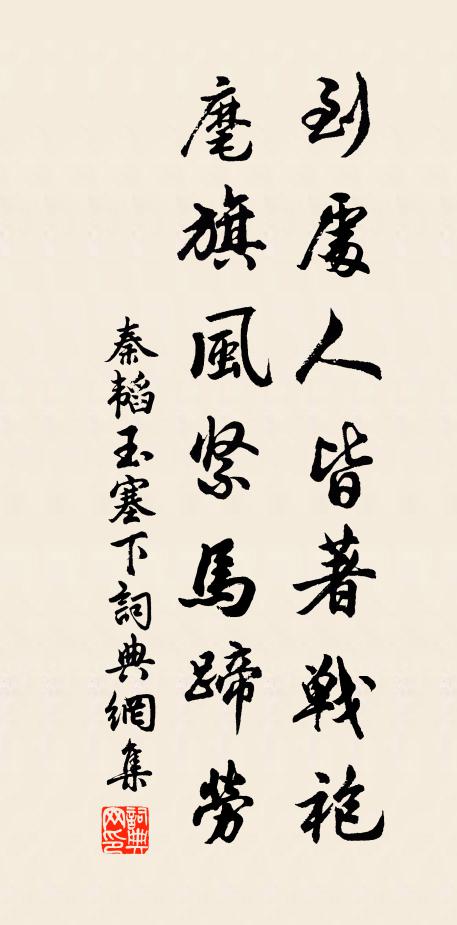 到處人皆著戰袍
麾旗風緊馬蹄勞
秦韜玉塞下詞典網集
詞典网印